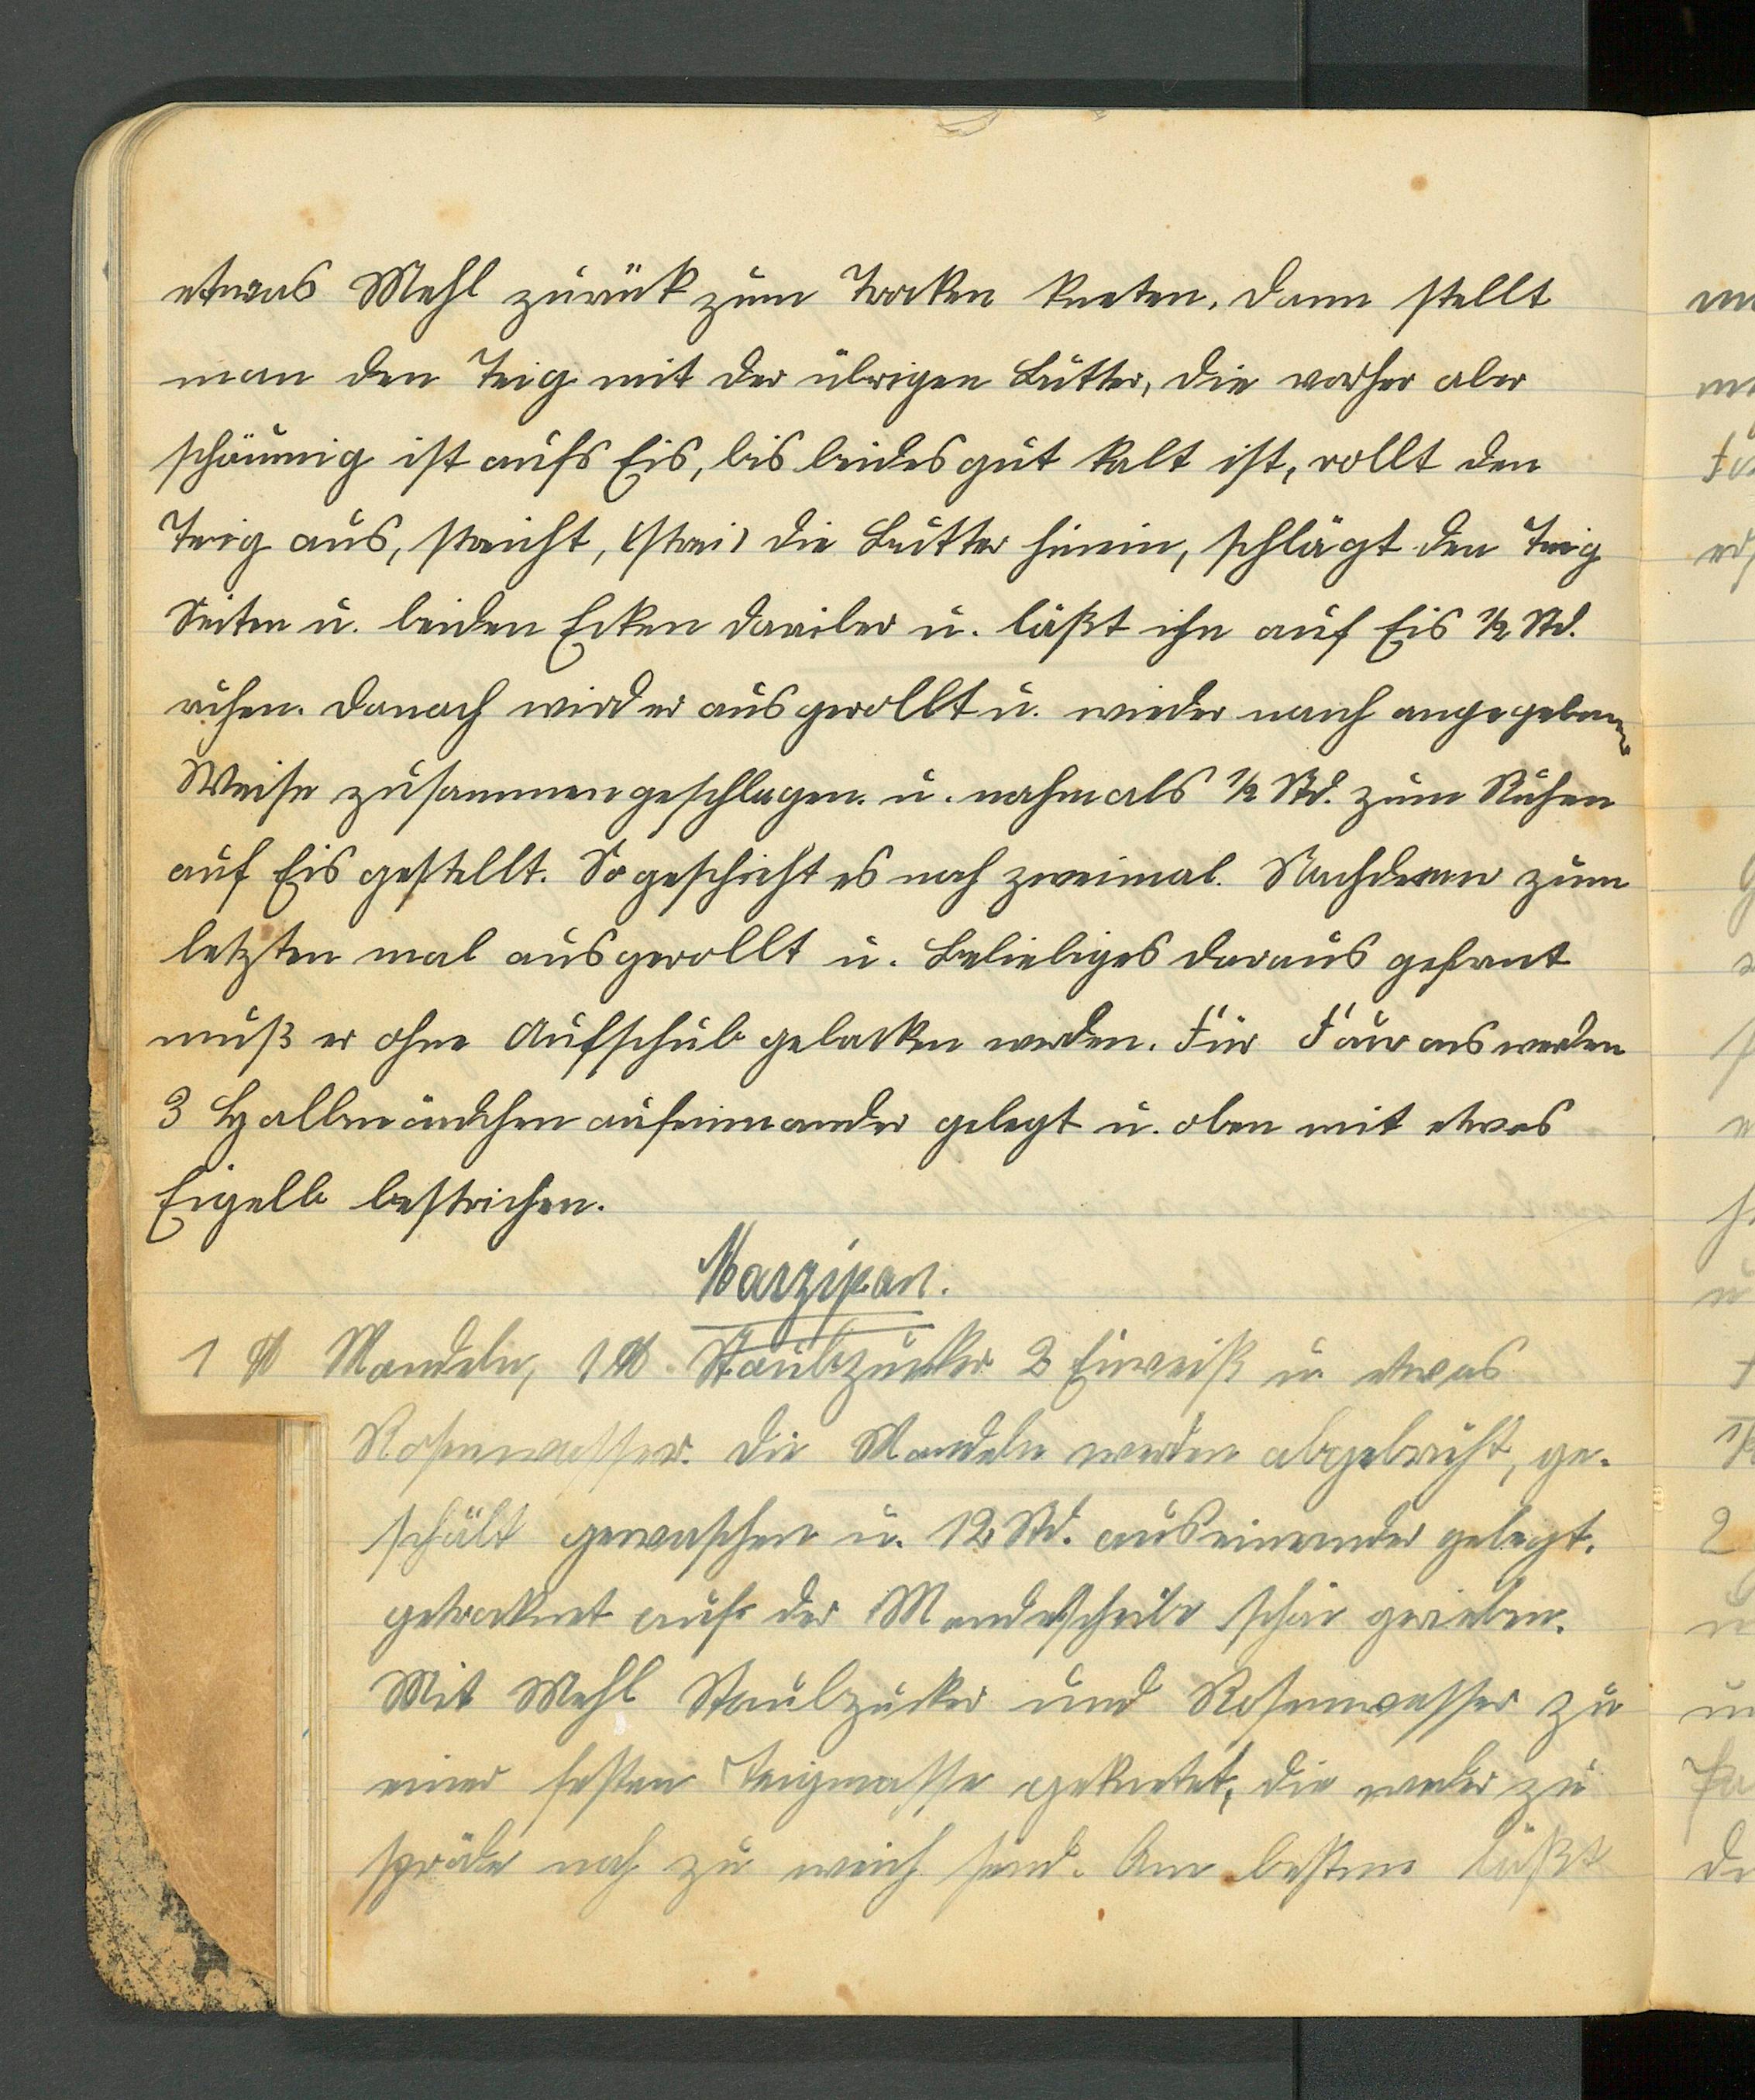 etwas Mehl zurück zum Trocken kneten. Dann stellt
man den Teig mit der übrigen Butter, die vorher aber
schäumig ist aufs Eis, bis beides gut kalt ist, rollt den
Teig aus, streicht, (strei) die Butter hinein, schlägt den Teig
Seiten u. beiden Ecken darüber u. läßt ihn auf Eis 1/2 Std.
ruhen. Danach wird er ausgerollt u. wieder nach angegebener
Weise zusammengeschlagen. u. nochmals 1/2 Std. zum Ruhen
auf Eis gestellt. So geschieht es noch zweimal. Nachdem zum
letzten mal ausgerollt u. Beliebiges daraus geformt
muß er ohne Aufschub gebacken werden. Für werden
3 Halbmöndchen aufeinander gelegt u. oben mit etwas
Eigelb bestrichen.
Marzipan.
1 ℔ Mandeln, 1 ℔ Staubzucker 2 Eiweiß u. etwas
Rosenwasser. Die Mandeln werden abgebrüht, ge-
schält gewaschen u. 12 Std. auseinander gelegt.
getrocknet auf der Mandelscheibe gerieben.
Mit Mehl Staubzucker und Rosenwasser zu
einer festen Teigmasse geknetet, die weder zu
spröde noch zu weich sind. Am besten läßt
ma